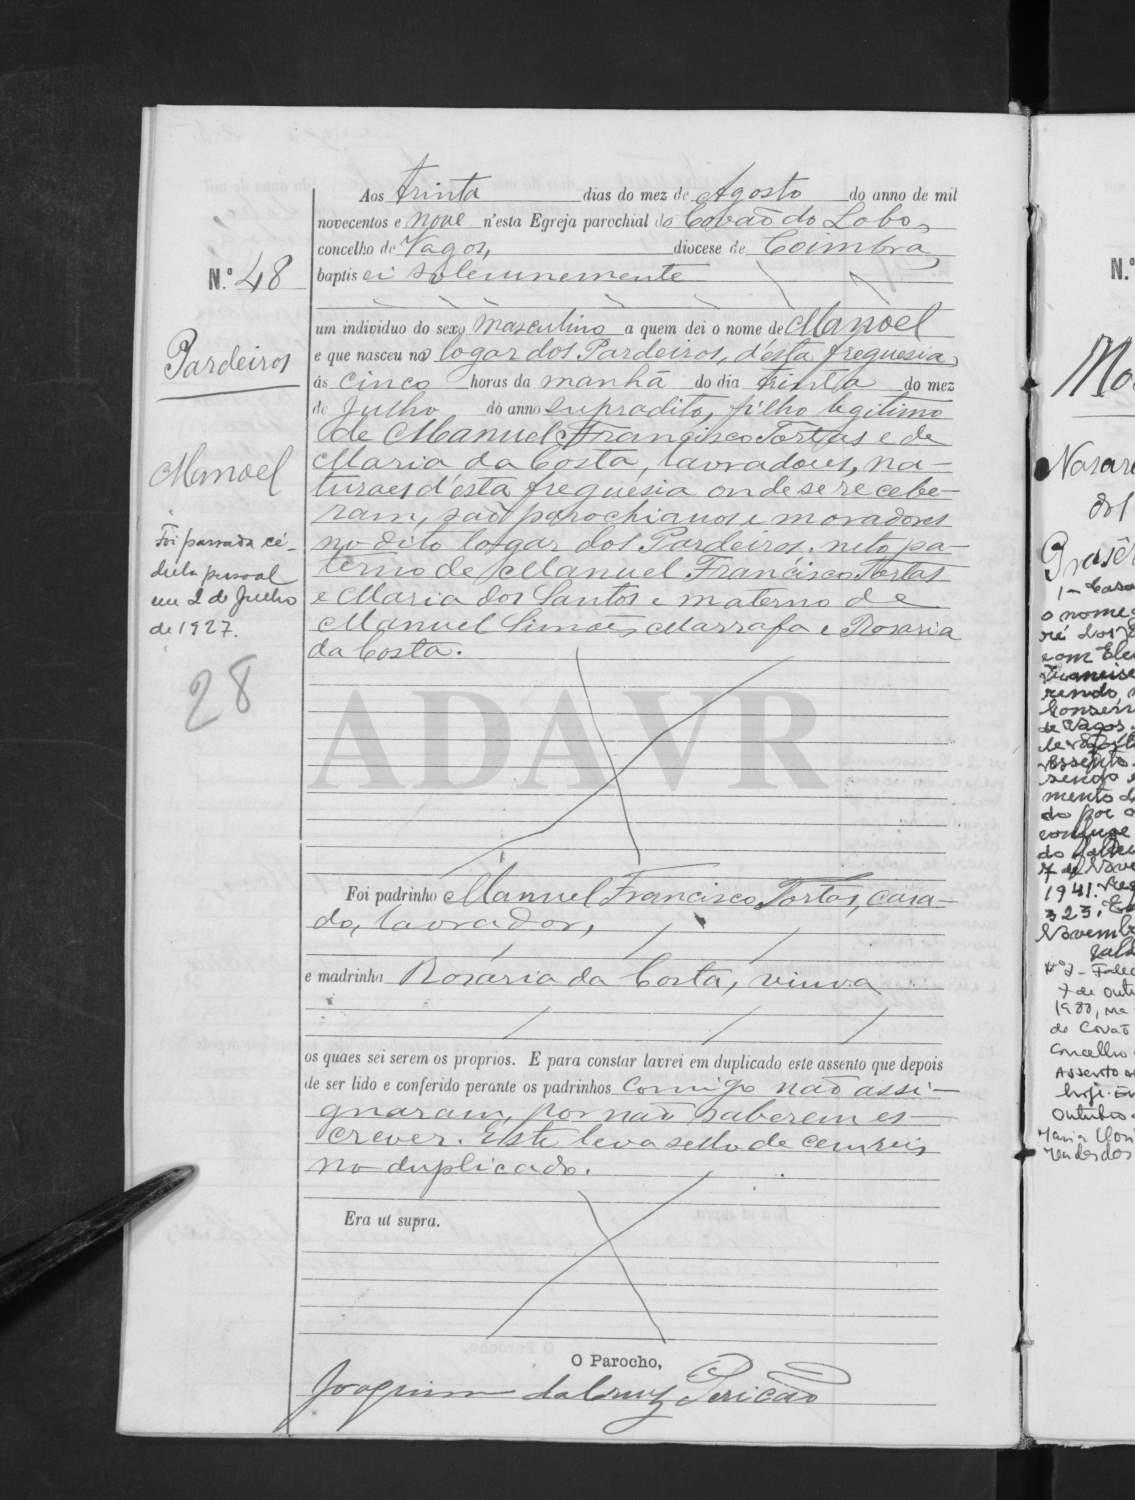 Aos trinta dias do mez de Agosto do anno de mil
novecentos e nove n'esta Egreja parochial do Covão do Lobo,
concelho de Vagos, diocese de Coimbra,
baptisei solemnemente
N.º 48
um individuo do sexo masculino a quem dei o nome de Manoel
e que nasceu no logar dos Pardeiros, d'esta freguesia,
Pardeiros
ás cinco horas da manhã do dia trinta do mez
de Julho do anno supradito, filho legitimo
de Manuel Francisco Tortas e de
Maria da Costa, lavradores, na-
Manoel
turaes d'esta freguesia onde se recebe-
ram, são parochianos e moradores
no dito logar dos Pardeiros, neto pa-
terno de Manuel Francisco Tortas
e Maria dos Santos e materno de
Manuel Simões Marrafa e Rosaria
da Costa.
Foi passada cé-
dula pessoal
em 2 de Julho
de 1927.
28
ADAVR
Foi padrinho Manuel Francisco Tortas, casa-
do, lavrador,
e madrinha Rosaria da Costa, viuva
os quaes sei serem os proprios. E para constar lavrei em duplicado este assento que depois
de ser lido e conferido perante os padrinhos comigo não assi-
gnaram, por não saberem es-
crever. Este leva sello de cem reis
no duplicado.
Era ut supra.
O Parocho,
Joaquim da Cruz Pericão
N.º
Nasare
dos
1 - Casa
o nome
com Ele
de Vagos.
mento d
do por o
7 de Nove
1941.
323.
Novemb
Nº2 - Falec
7 de Outu
1980, na
de Covão
Concelho
Assento nº
hoje. Em
Outubro